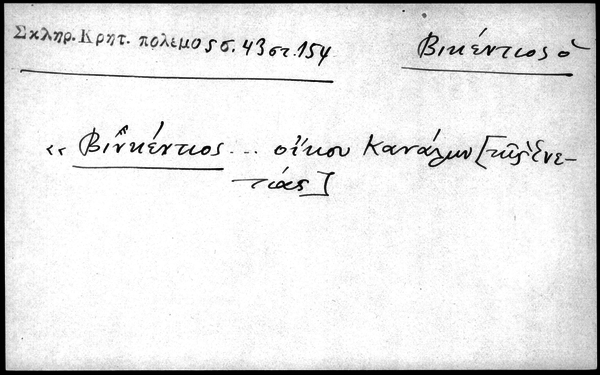 Σκληρ. Κρητ. πολεμος σ. 43 στ. 154
Βικέντιος ὁ
« Βινκέντιος ... οἴκου Κανάλων [τῆς Ἑνε-
τίας]